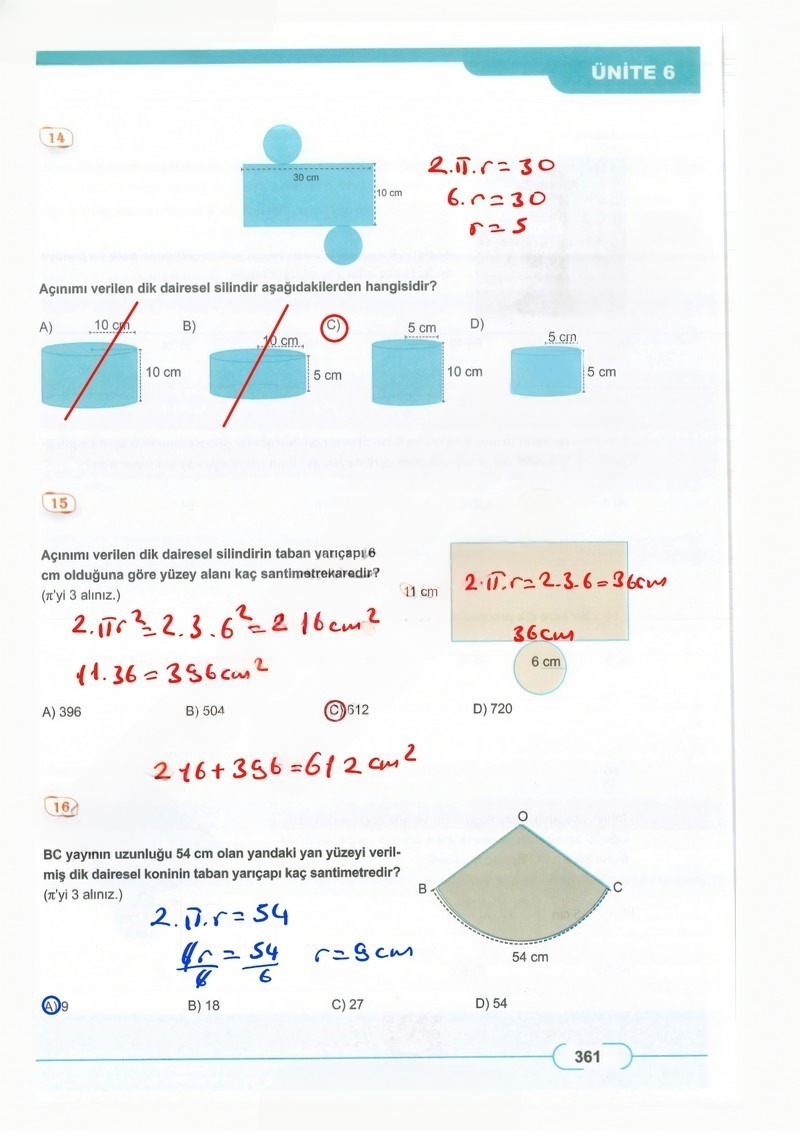 ÜNİTE 6
14
30 cm
10 cm
2.π.r = 30
6.r = 30
r = 5
Açınımı verilen dik dairesel silindir aşağıdakilerden hangisidir?
A) 10 cm 10 cm
B) 10 cm 5 cm
C) 5 cm 10 cm
D) 5 cm 5 cm
15
Açınımı verilen dik dairesel silindirin taban yarıçapı 6
cm olduğuna göre yüzey alanı kaç santimetrekaredir?
(π'yi 3 alınız.)
11 cm
2.π.r = 2.3.6 = 36cm
36cm
6 cm
2.πr² = 2.3.6² = 216cm²
11.36 = 396cm²
A) 396 B) 504 C) 612 D) 720
216 + 396 = 612 cm²
16
BC yayının uzunluğu 54 cm olan yandaki yan yüzeyi veril-
miş dik dairesel koninin taban yarıçapı kaç santimetredir?
(π'yi 3 alınız.)
O
B
C
54 cm
2.π.r = 54
6r/6 = 54/6 r = 9cm
A) 9 B) 18 C) 27 D) 54
361